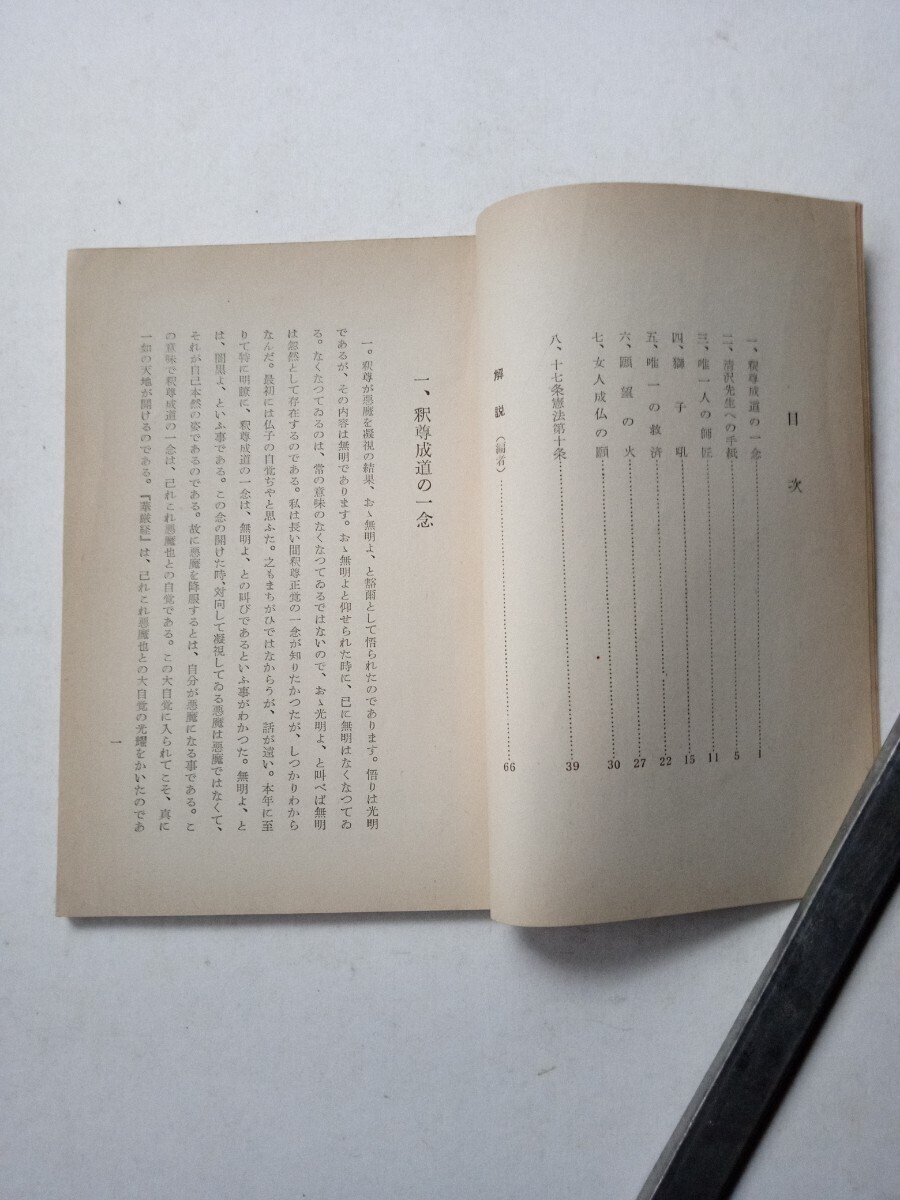 目次
一、釈尊成道の一念 1
二、清沢先生への手紙 5
三、唯一人の師匠 11
四、獅子吼 15
五、唯一の救済 22
六、願望の火 27
七、女人成仏の願 30
八、十七条憲法第十条 39
解説（編者） 66
一、釈尊成道の一念
一。釈尊が悪魔を凝視の結果、おゝ無明よ、と豁爾として悟られたのであります。悟りは光明
であるが、その内容は無明であります。おゝ無明よと仰せられた時に、已に無明はなくなつてゐ
る。なくなつてゐるのは、常の意味のなくなつてゐるではないので、おゝ光明よ、と叫べば無明
は忽然として存在するのである。私は長い間釈尊正覚の一念が知りたかつたが、しつかりわから
なんだ。最初には仏子の自覚ぢやと思ふた。之もまちがひではなからうが、話が遠い。本年に至
りて特に明瞭に、釈尊成道の一念は、無明よ、との叫びであるといふ事がわかつた。無明よ、と
は、闇黒よ、といふ事である。この念の開けた時、対向して凝視してゐる悪魔は悪魔ではなくて、
それが自己本然の姿であるのである。故に悪魔を降服するとは、自分が悪魔になる事である。こ
の意味で釈尊成道の一念は、己れこれ悪魔也との自覚である。この大自覚に入られてこそ、真に
一如の天地が開けるのである。『華厳経』は、己れこれ悪魔也との大自覚の光耀をかいたのであ
一